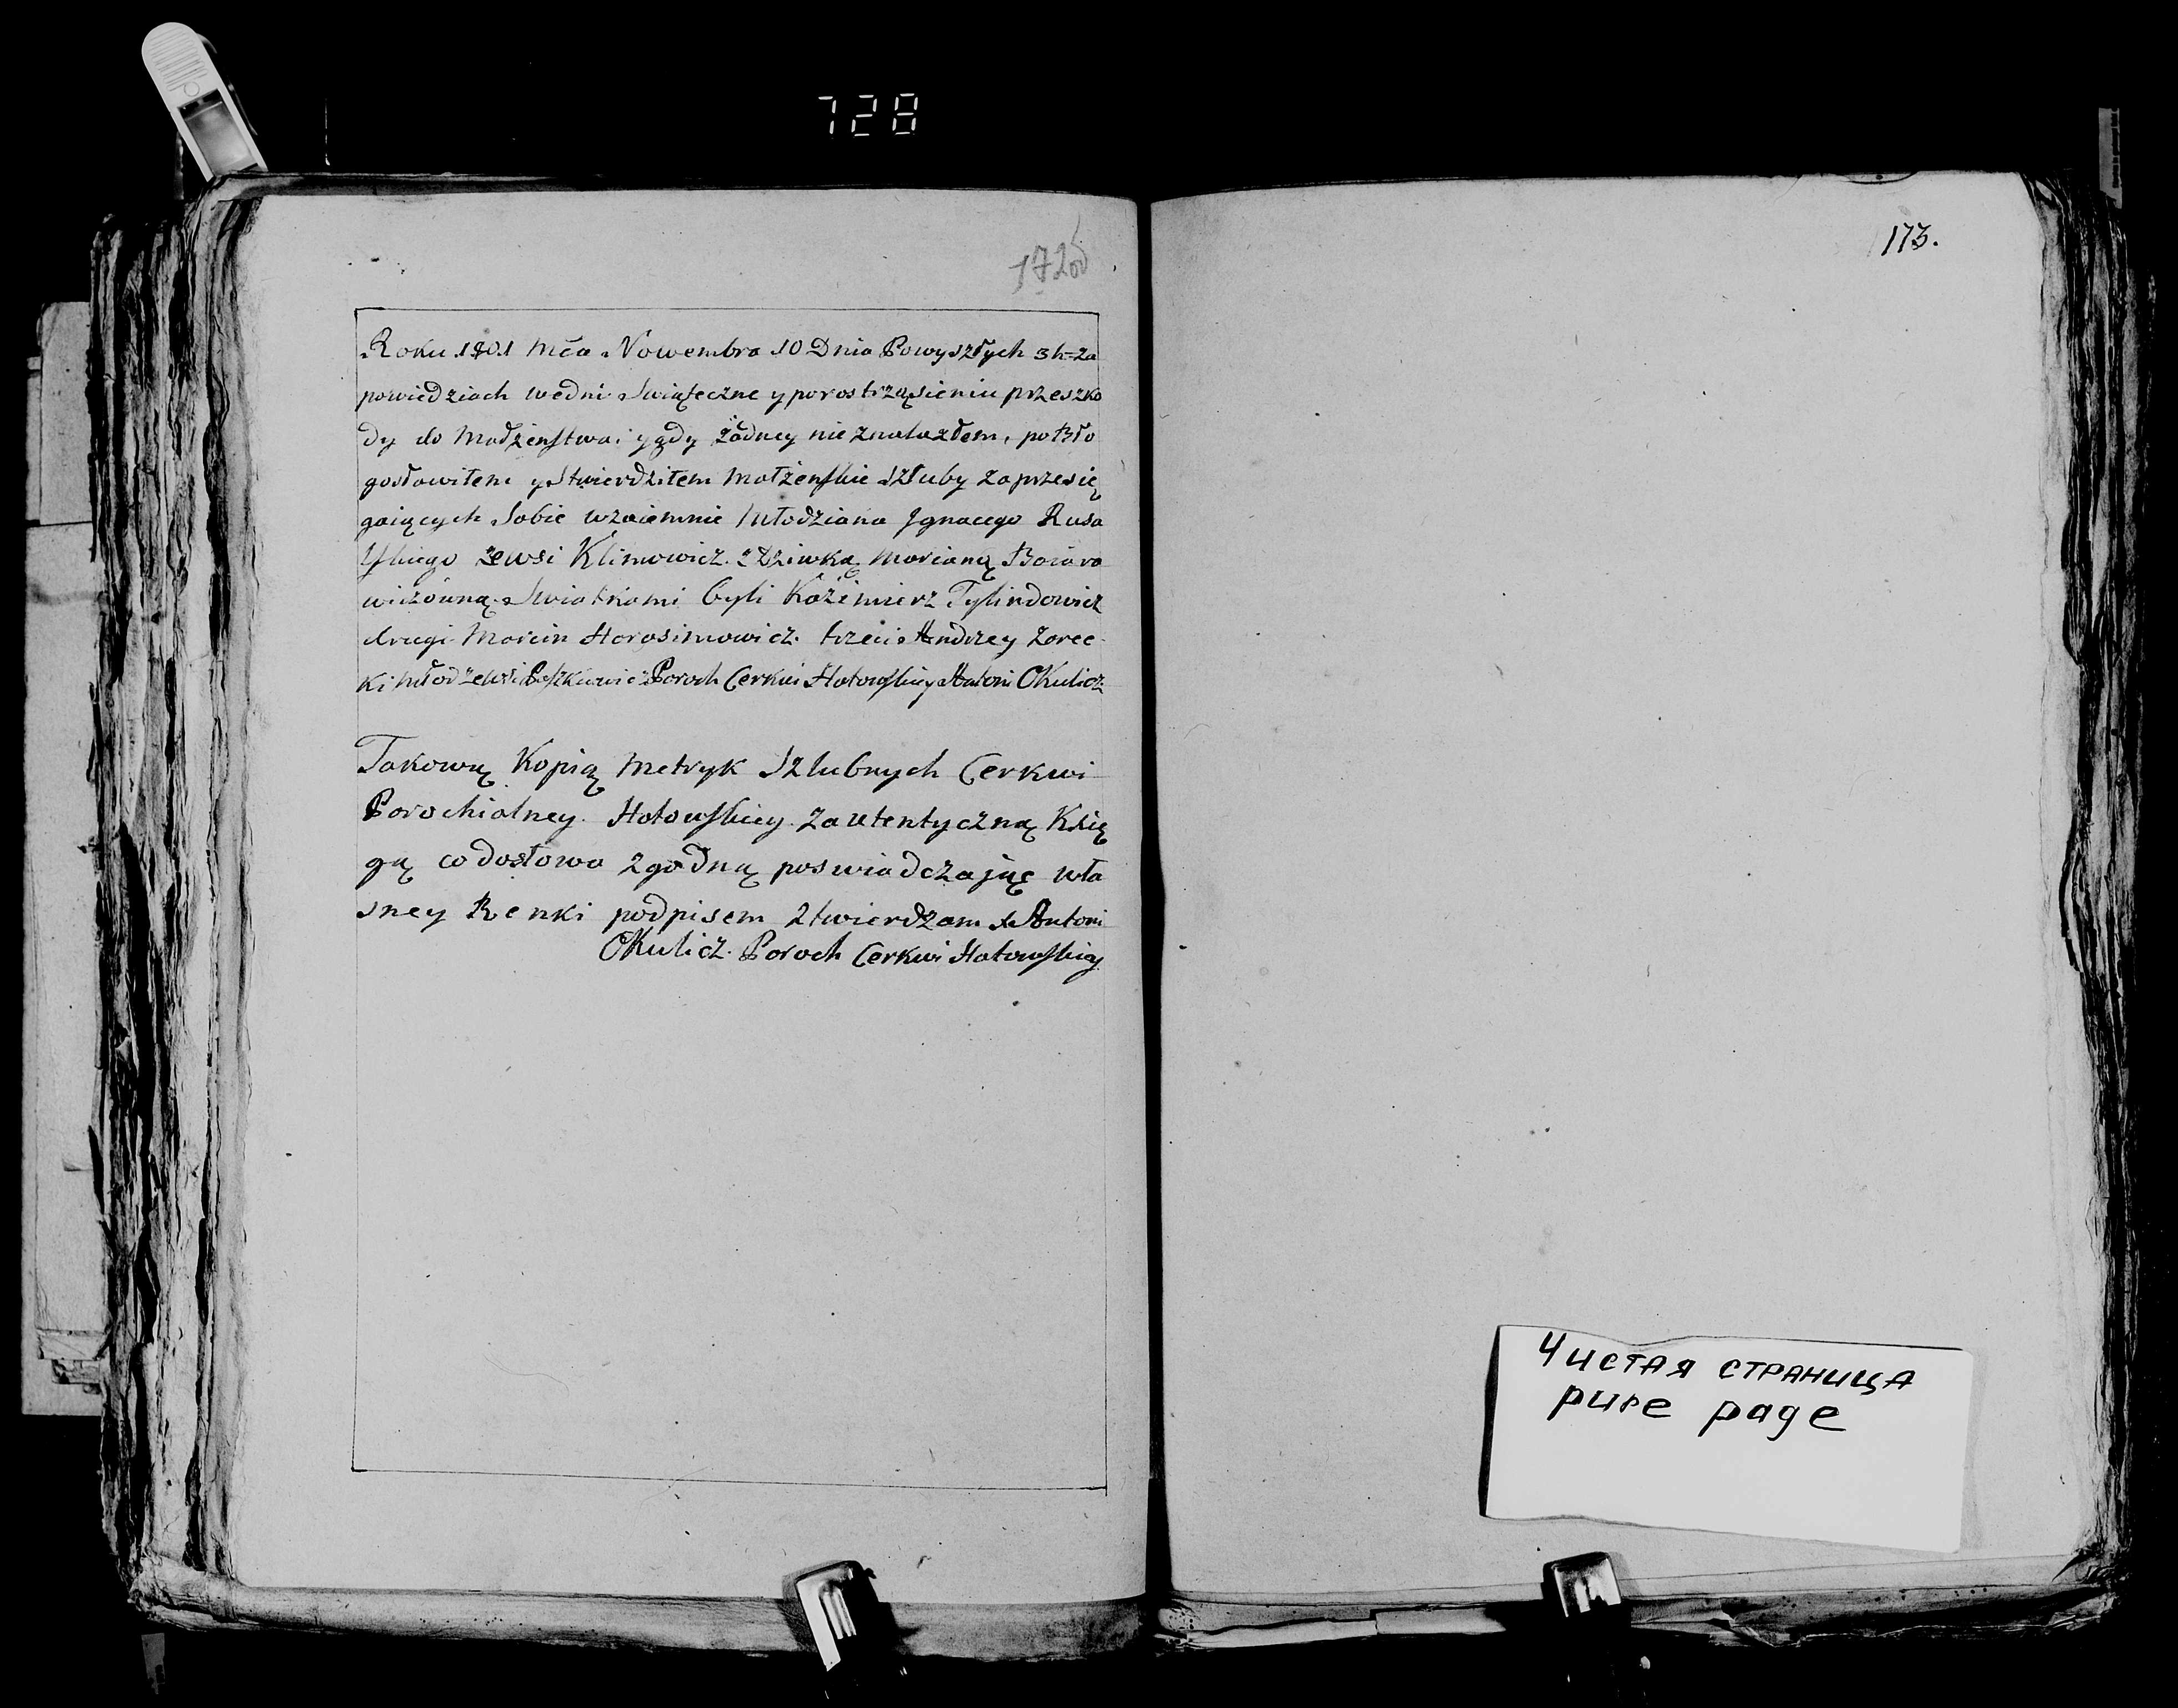 728
172об
173.
Roku 1801 Mča Nowembra 10 Dnia Powyszłych 3h=za
powiedziach wedni Swiąteczne y porostrząsieniu przeszko
dy do Modżenstwa i ygdy żadney nieznalazłem, pobło
gosławiłem y Stwierdziłem Małżenskie Szluby zaprzesię
gaiących Sobie wzaiemnie Młodziana Jgnacego Rusa
zewsi Klimowicz z Dziwką Marianą Boiaro
wiczówną Swiatkami byli Kaźimierz Tylindowicz
drugi Marcin Harasimowicz trzeci Andrzey Zarec
ki Paroch Cerkwi Hotowskiey Antoni Okulicz
Takowuą Kopią Metryk Szlubnych Cerkwi
Parochialney Hotowskiey zautentyczną Księ
gą codosłowa zgodną poswiadczając wła
sney Renki podpisem ztwierdzam X Antoni
Okulicz Paroch Cerkwi Hotowskiey
Чистая страница
pure page